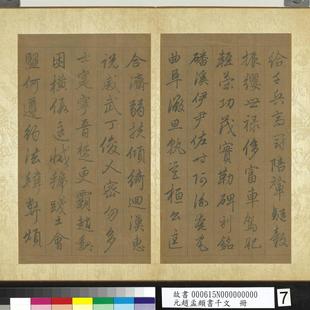 給千兵高冠陪輦驅轂
振纓世祿侈富車駕肥
輕策功茂實勒碑刻銘
磻溪伊尹佐時阿衡奄宅
曲阜微旦孰營桓公匡
合濟弱扶傾綺迴漢惠
說感武丁俊乂密勿多
士寔寧晉楚更霸趙魏
困橫假途滅虢踐土會
盟何遵約法韓弊煩
故書 000615N000000000
元趙孟頫書千文 冊
7